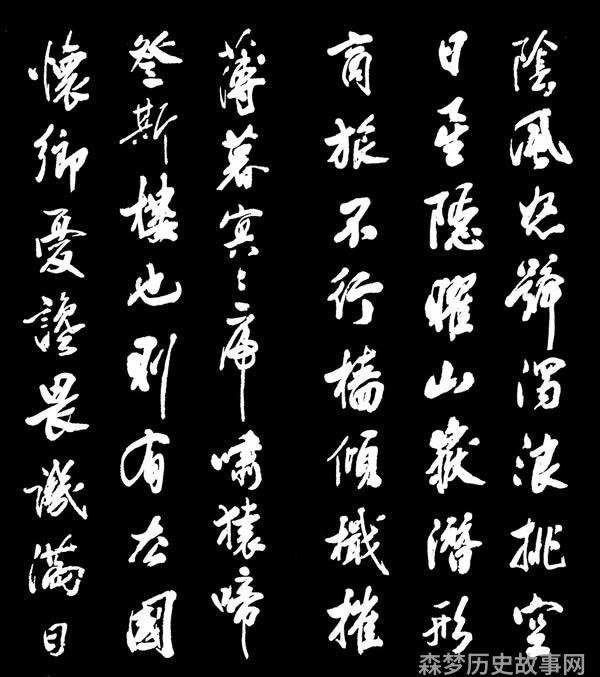 陰風怒號濁浪排空
日星隱曜山嶽潛形
商旅不行檣傾檝摧
薄暮冥〻虎嘯猿啼
登斯樓也則有去國
懷鄉憂讒畏譏滿目
森梦历史故事网